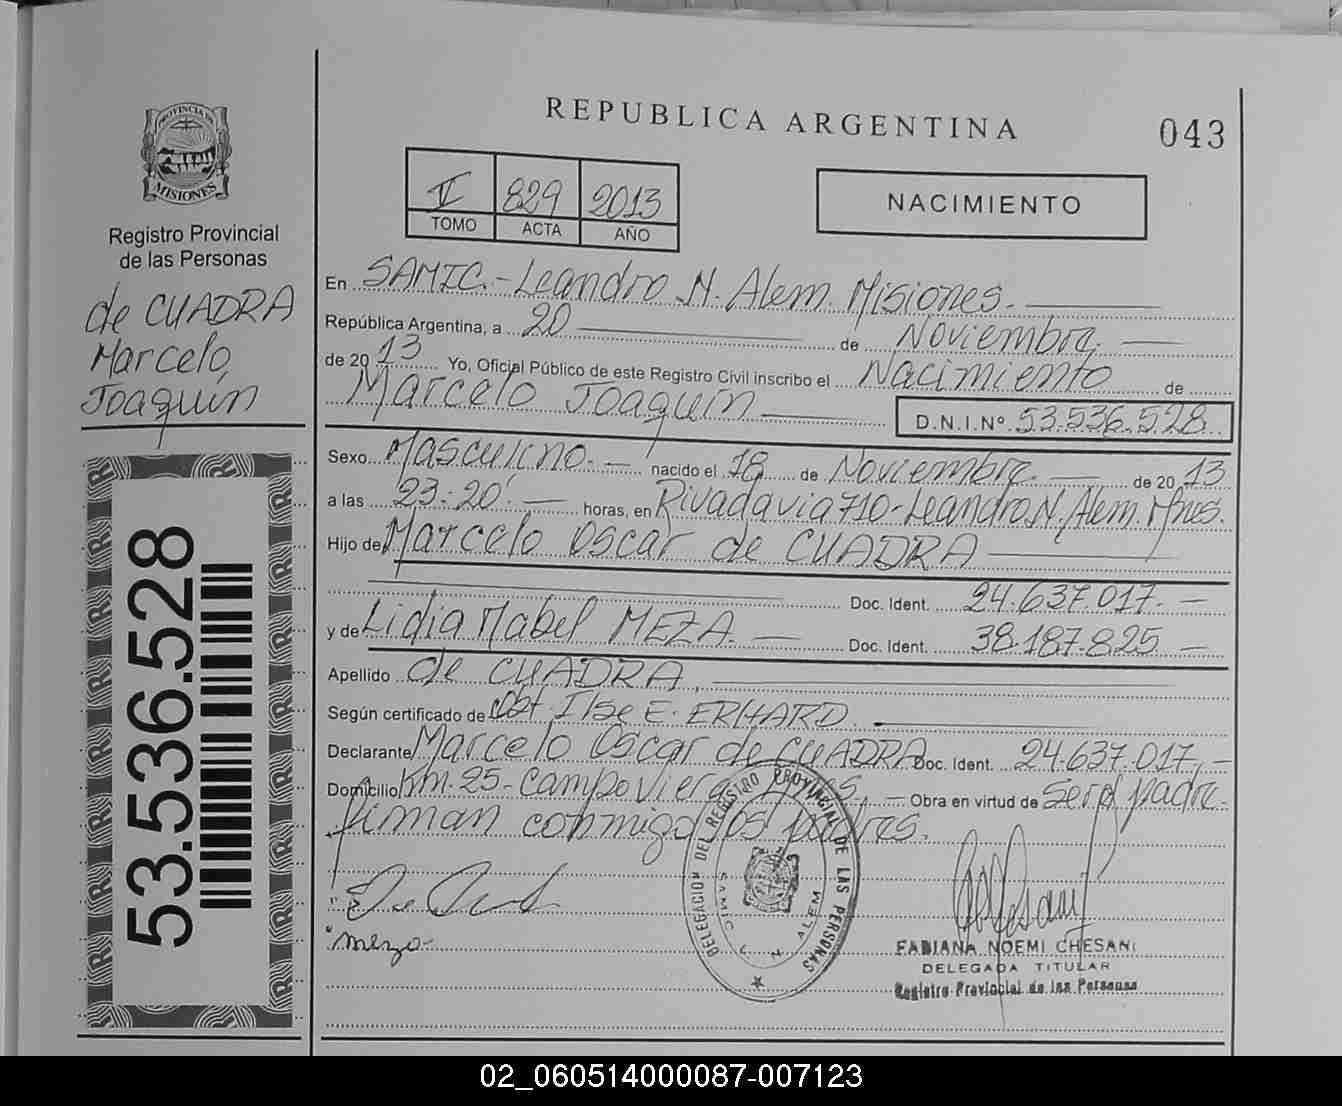 PROVINCIA DE
MISIONES
Registro Provincial
de las Personas
de CUADRA
Marcelo
Joaquín
53.536.528
REPUBLICA ARGENTINA
043
V 829 2013
TOMO ACTA AÑO
NACIMIENTO
En SAMIC.- Leandro N. Alem. Misiones.
República Argentina, a 20 de Noviembre
de 2013 Yo, Oficial Público de este Registro Civil inscribo el Nacimiento de
Marcelo Joaquín D.N.I.Nº 53.536.528
Sexo Masculino.- nacido el 18 de Noviembre de 2013
a las 23:20'.- horas, en Rivadavia 710-Leandro N. Alem. Mnes.
Hijo de Marcelo Oscar de CUADRA
Doc. Ident. 24.637.017.-
y de Lidia Mabel MEZA.- Doc. Ident. 38.187.825 -
Apellido de CUADRA.
Según certificado de Obst. Ilse E. ERHARD
Declarante Marcelo Oscar de CUADRA Doc. Ident. 24.637.017.-
Domicilio Km.25-Campo Viera Mnes.- Obra en virtud de Ser el padre.-
firman conmigo los padres.
meza
DELEGACION DEL REGISTRO PROVINCIAL DE LAS PERSONAS
SAMIC L. N. ALEM
FABIANA NOEMI CHESANI
DELEGADA TITULAR
Registro Provincial de las Personas
02_060514000087-007123